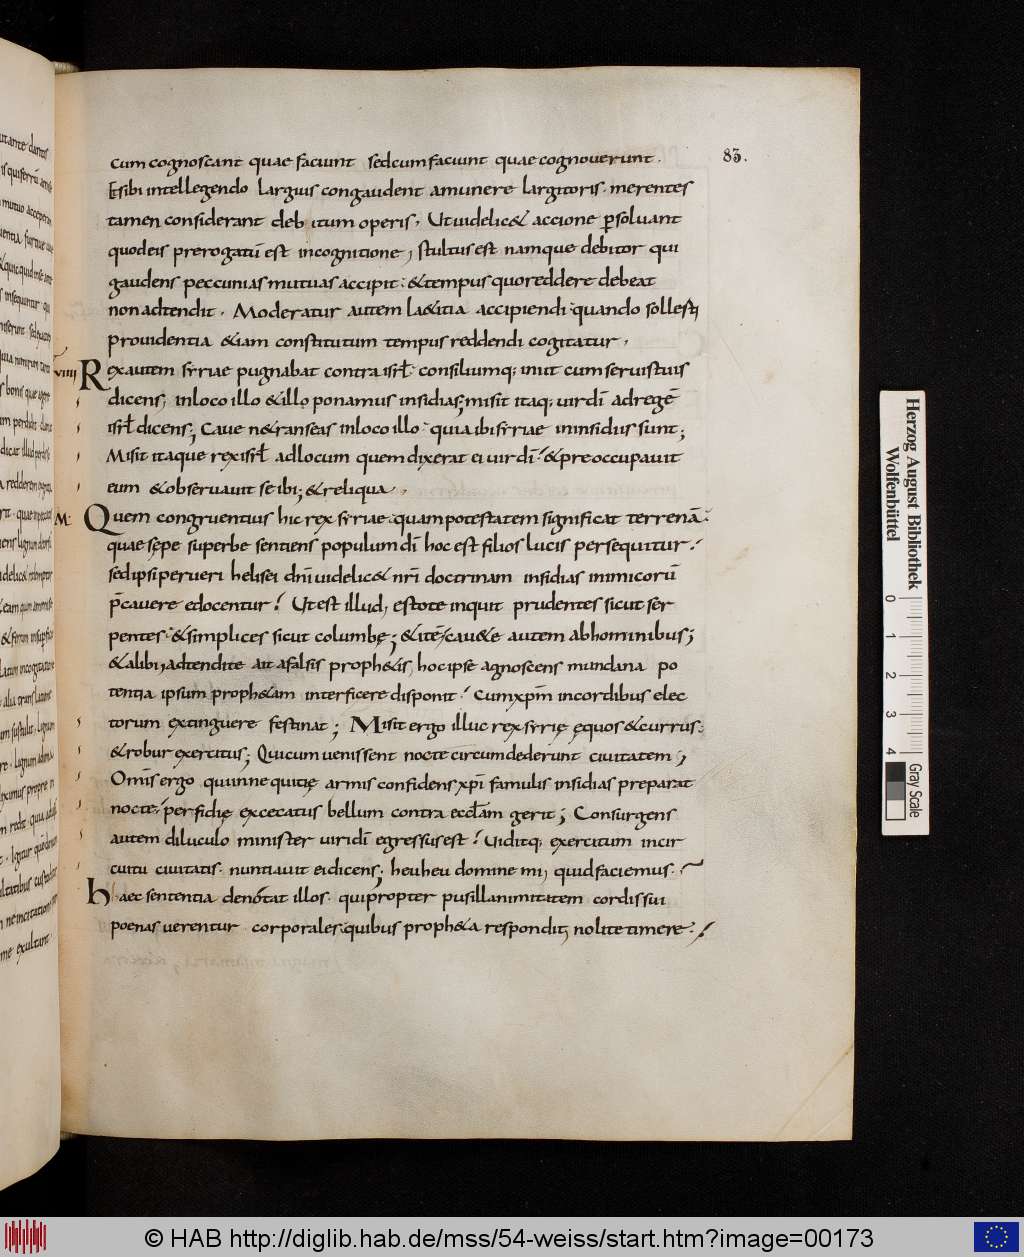 83.
cum cognoscant quae faciunt sed cum faciunt quae cognoverunt.
Et sibi intellegendo largius congaudent a munere largitoris. merentes
tamen considerant debitum operis. Ut videlic& accione p̱soluant
quod eis prerogatū est in cognitione; stultus est namque debitor qui
gaudens peccunias mutuas accipit. & tempus quo reddere debeat
non adtendit. Moderatur autem la&itia accipiendi. quando sollesti
providentia &iam constitutum tempus reddendi cogitatur.
viiii Rex autem syriae pugnabat contra isrł. consiliumq; iniit cum servis suis
dicens; in loco illo & illo ponamus insidias; misit itaq; vir dī ad regē
isrł dicens; Cave ne transeas in loco illo. quia ibi syriae in insidiis sunt;
Misit itaque rex isrł ad locum quem dixerat ei vir dī. & preoccupavit
eum & observavit se ibi; & reliqua.
M. Quem congruentius hic rex syriae. quam potestatem significat terrenā.
quae sępe superbe sentiens populum dī hoc est filios lucis persequitur.
sed ipsi per veri helisei dn̄i videlic& nr̄i doctrinam insidias inimicorū
p̄cavere edocentur. Ut est illud, estote inquit prudentes sicut ser
pentes. & simplices sicut columbę; & itē, cav&e autem ab hominibus;
& alibi, adtendite ait a falsis proph&is, hoc ipse agnoscens mundana po
tentia ipsum proph&am interficere disponit. Cum xp̄m in cordibus elec
torum extinguere festinat; Misit ergo illuc rex syrię ęquos & currus.
& robur exercitus; Qui cum venissent nocte circumdederunt civitatem;
Om̄s ergo qui in nequitię armis confidens xp̄i famulis insidias preparat
nocte. perfidię excecatus bellum contra eccłam gerit; Consurgens
autem diluculo minister viri dī egressus est. Viditq; exercitum in cir
cuitu civitatis. nuntiavit ei dicens; heu heu domine mi, quid faciemus.
Haec sententia denotat illos. qui propter pusillanimitatem cordis sui
poenas verentur corporales. quibus proph&a respondit, nolite timere.
Herzog August Bibliothek
Wolfenbüttel
0 1 2 3 4
Gray Scale
© HAB http://diglib.hab.de/mss/54-weiss/start.htm?image=00173